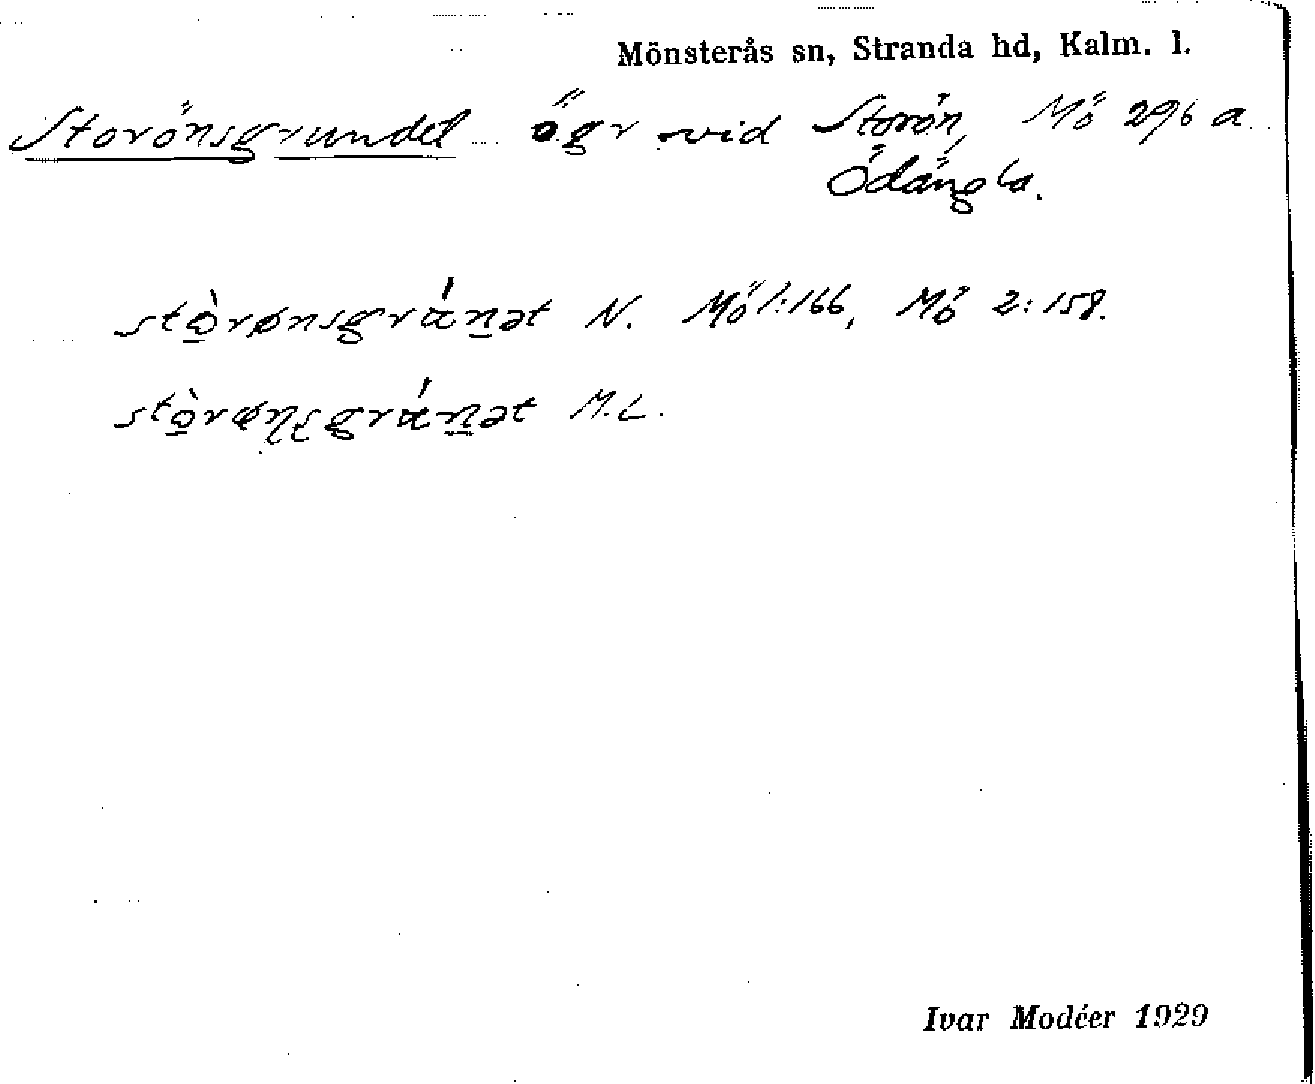 Mönsterås sn, Stranda hd, Kalm. l.
Storönsgrundet ögr vid Storön, Mö 296 a
Ödängla.
stò̱rønsgráṉət N. Mö 1:166, Mö 2:158.
M.L.
Ivar Modéer 1929